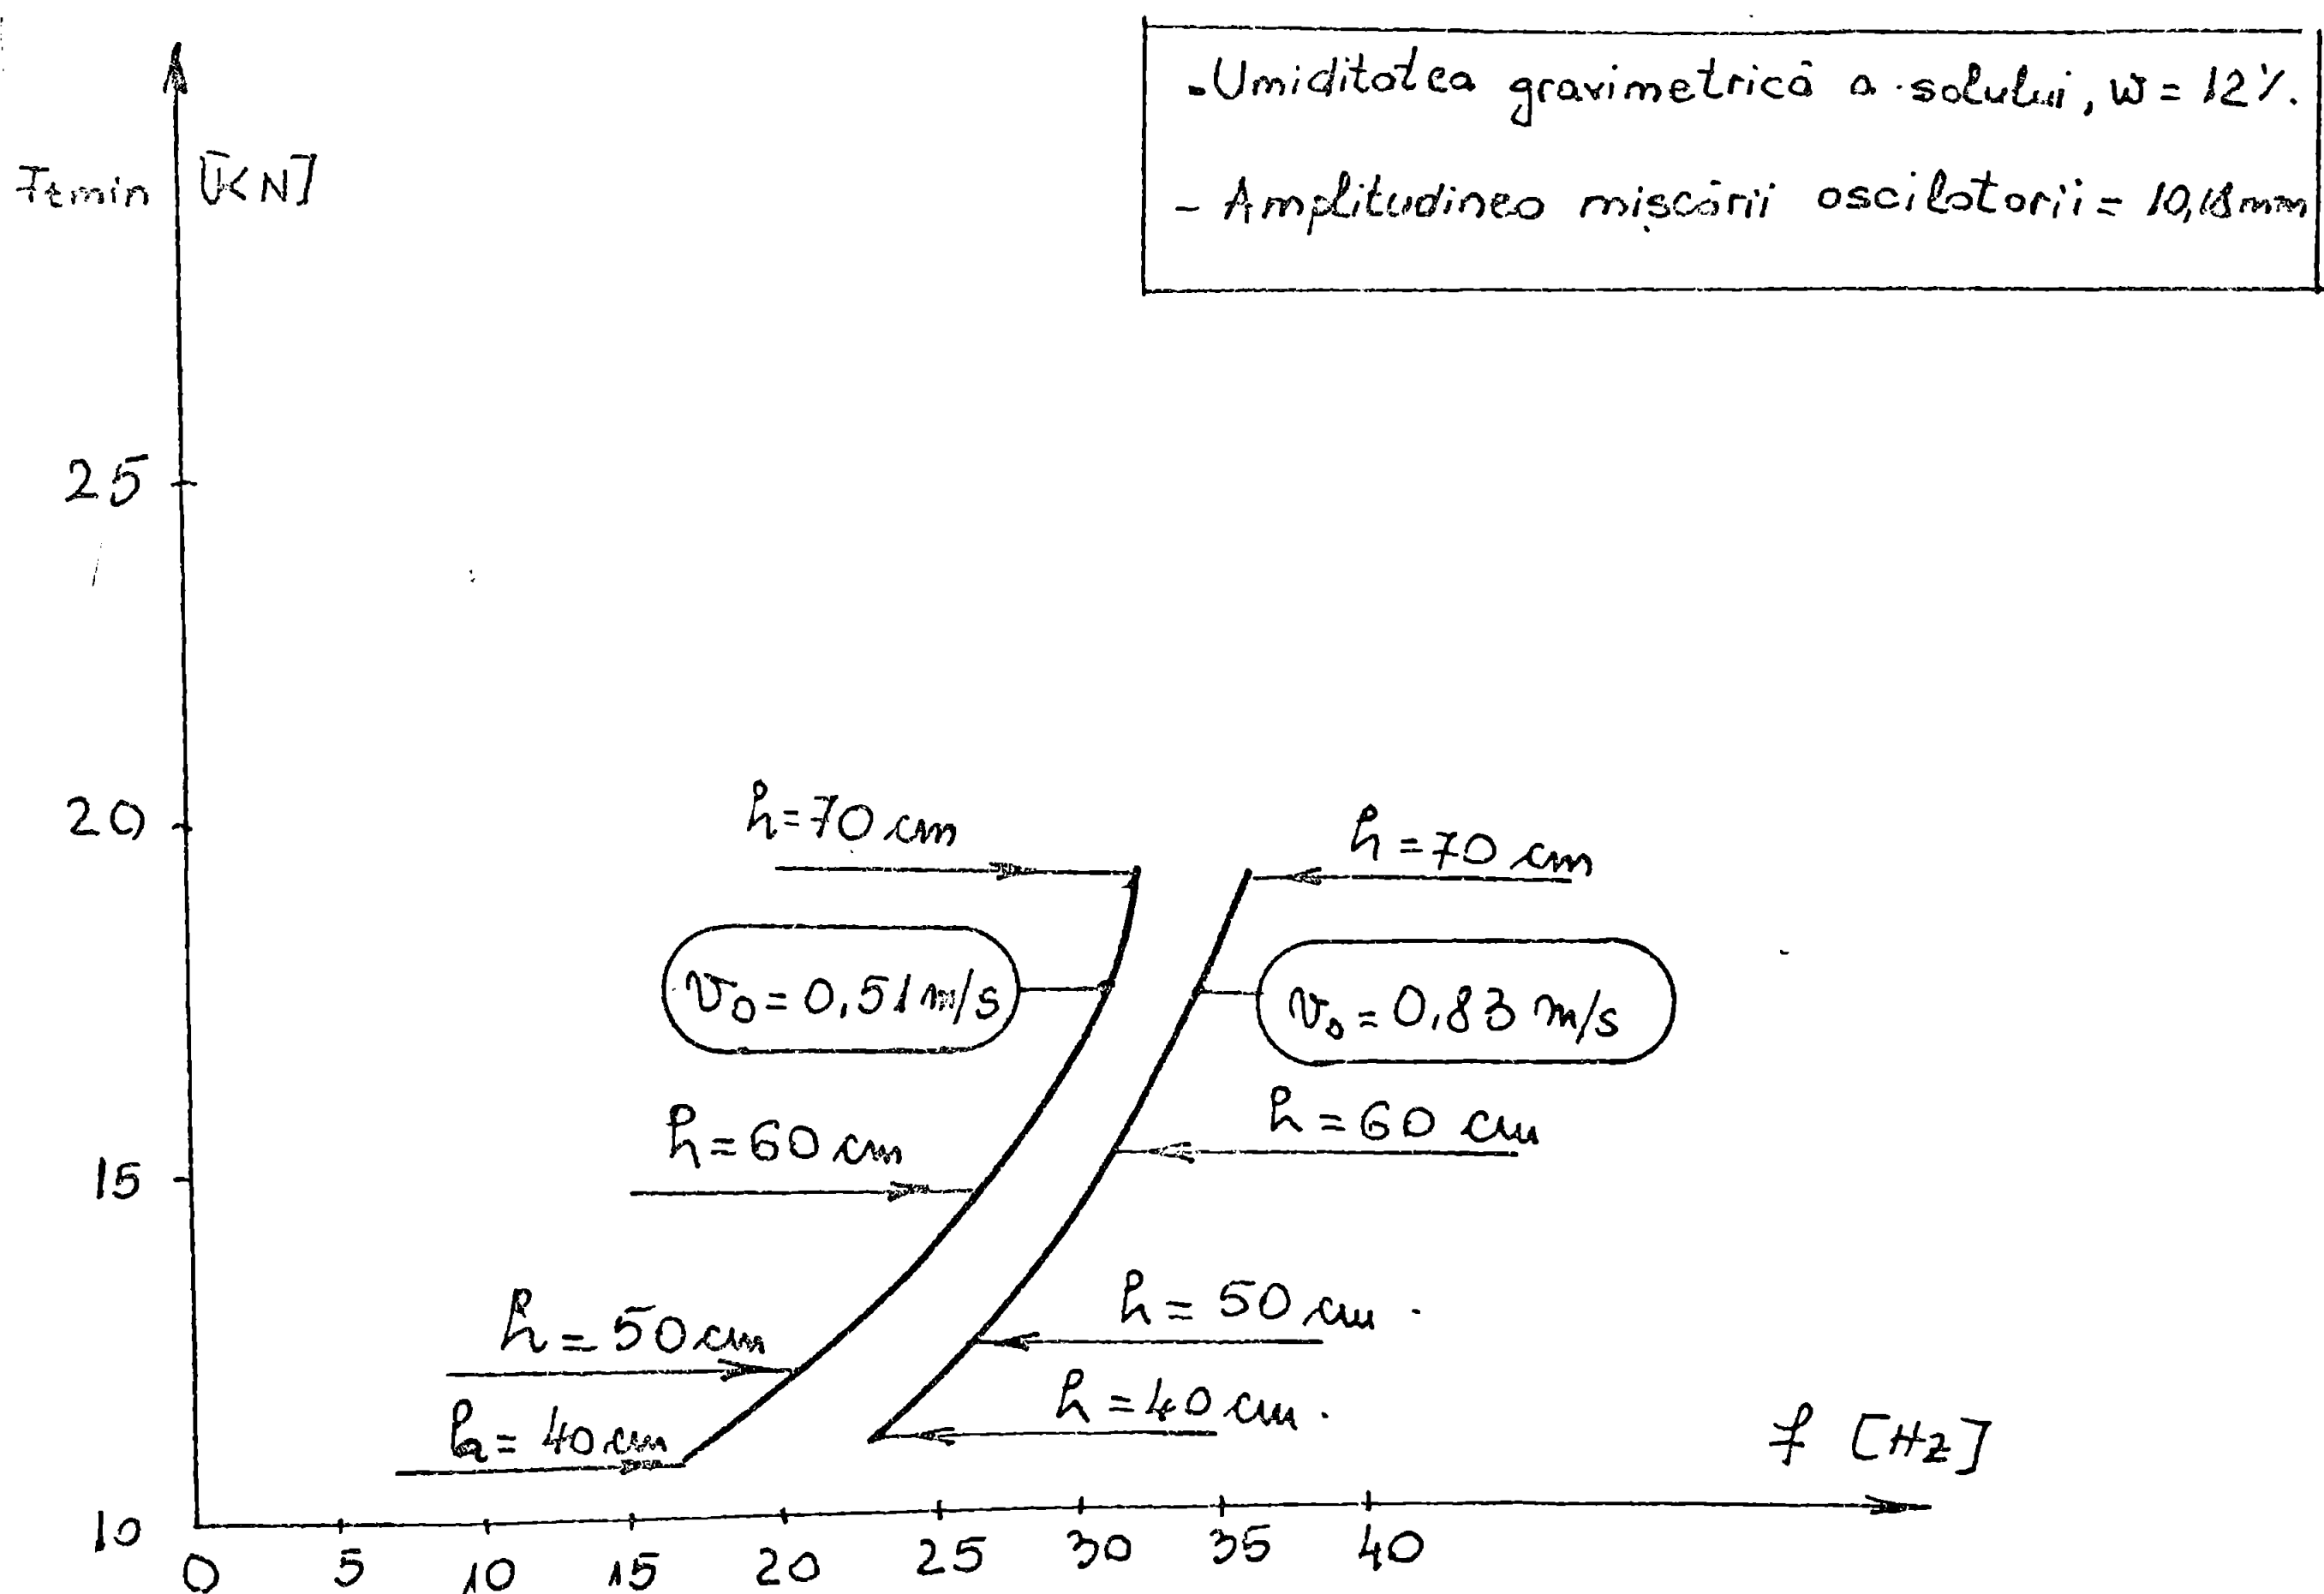 -Umiditatea gravimetrică a solului, w = 12%.
- Amplitudinea mișcării oscilatorii = 10,18mm
Ftmin [KN]
25
20
15
10
h=70 cm
h=70 cm
v₀=0,51m/s
v₀=0,83 m/s
h=60 cm
h=60 cm
h=50cm
h=50 cm
h=40cm
h=40 cm.
f [Hz]
0 5 10 15 20 25 30 35 40